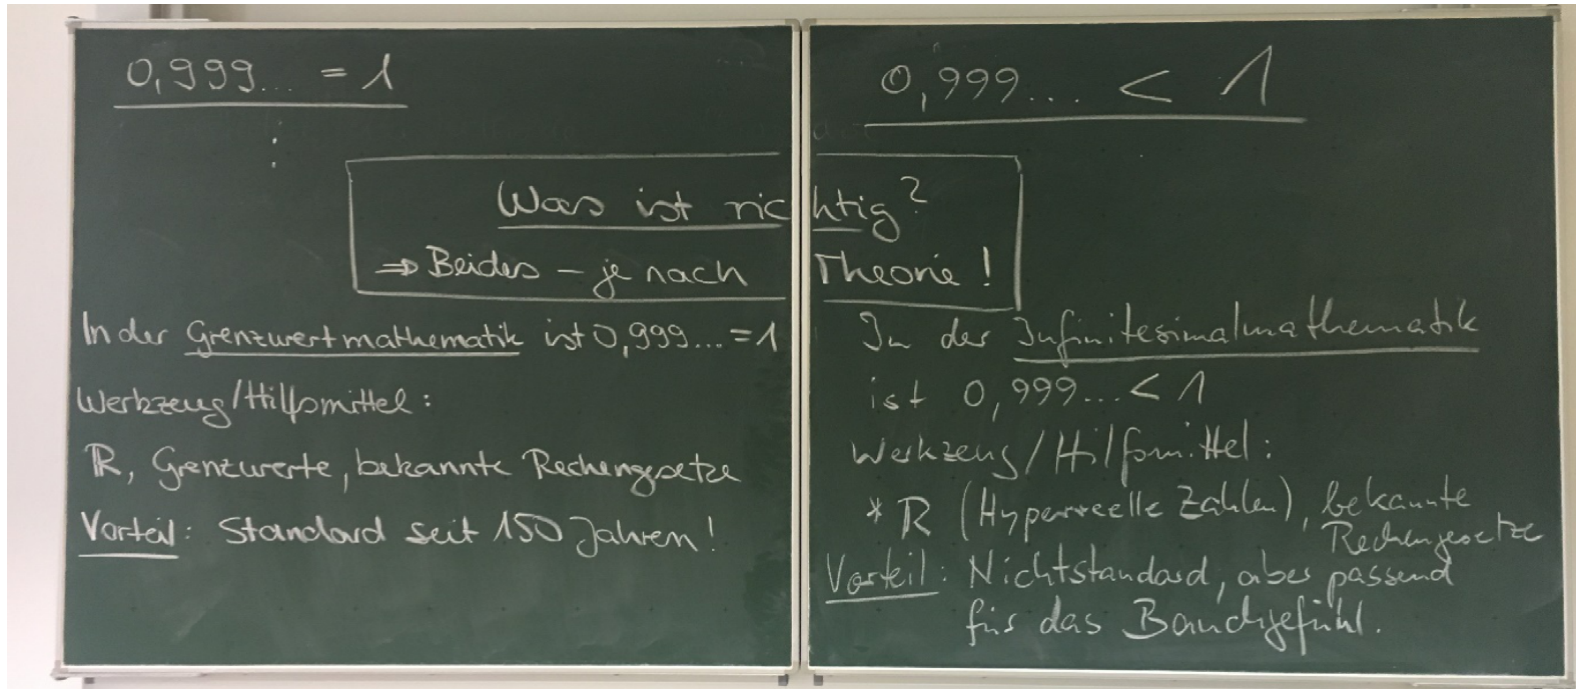 0,999... = 1
⋮
0,999... < 1
Was ist richtig?
⇒ Beides – je nach Theorie!
In der Grenzwertmathematik ist 0,999... = 1
Werkzeug/Hilfsmittel:
ℝ, Grenzwerte, bekannte Rechengesetze
Vorteil: Standard seit 150 Jahren!
In der Infinitesimalmathematik
ist 0,999... < 1
Werkzeug/Hilfsmittel:
*ℝ (Hyperreelle Zahlen), bekannte
Rechengesetze
Vorteil: Nichtstandard, aber passend
für das Bauchgefühl.